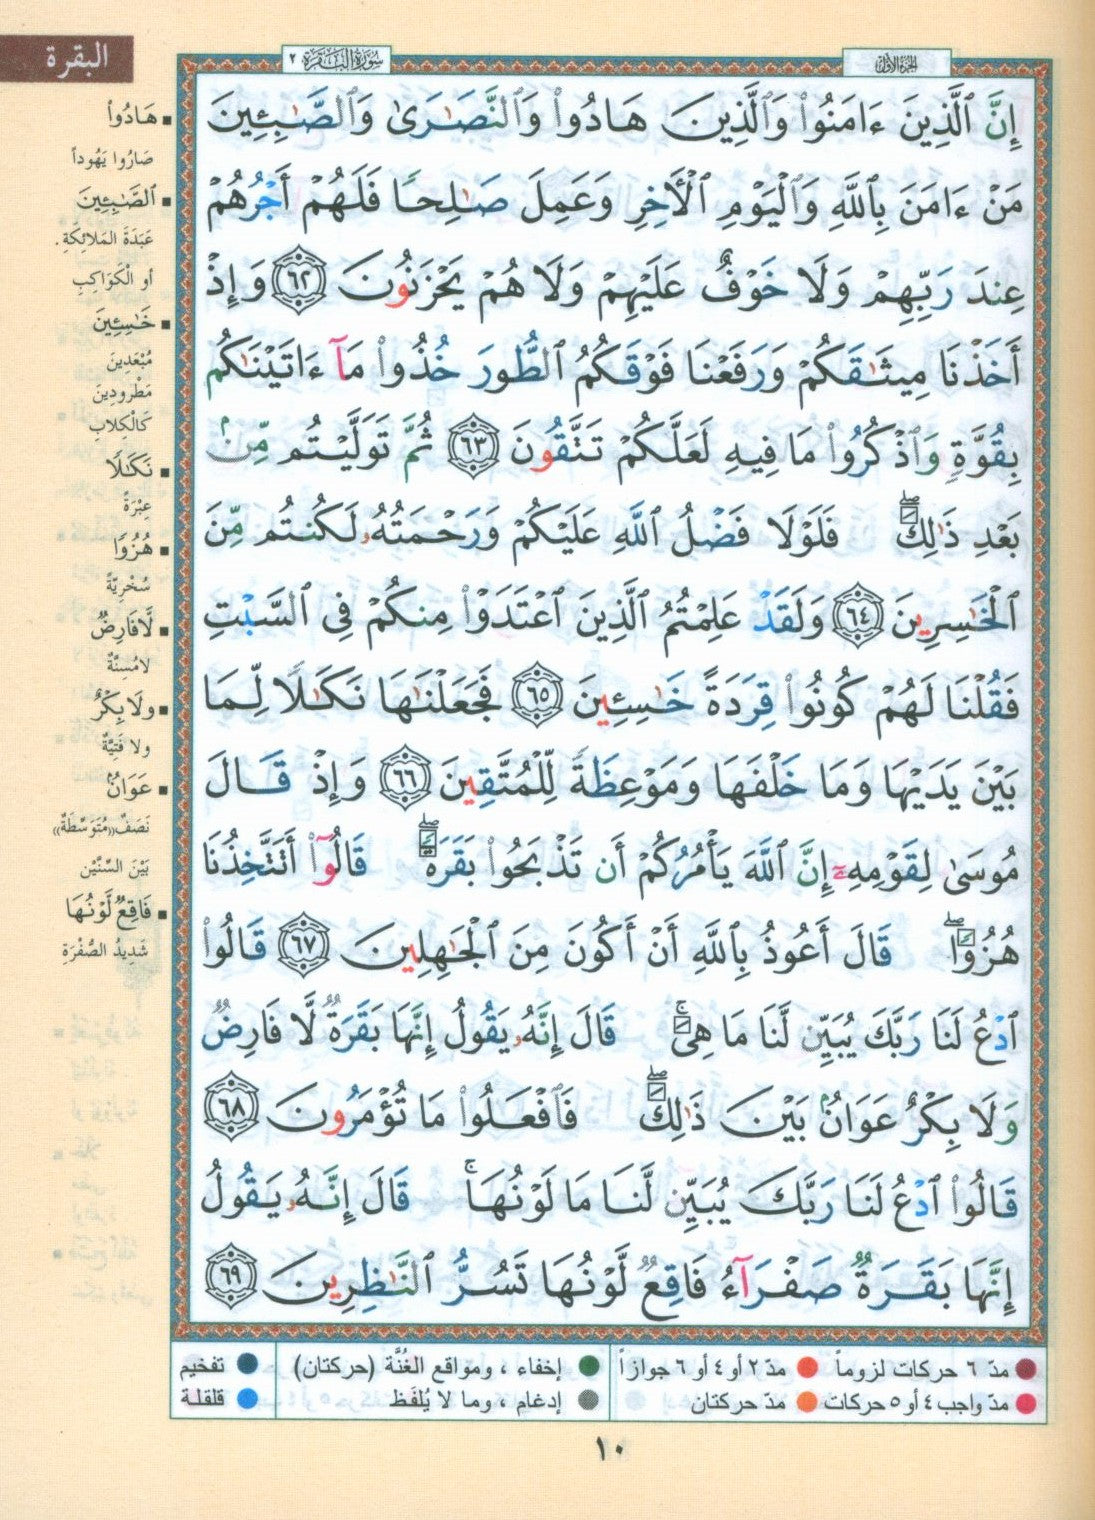 البقرة
سُورَةُ البَقَرَة ٢
الجزء الأول
إِنَّ ٱلَّذِينَ ءَامَنُوا۟ وَٱلَّذِينَ هَادُوا۟ وَٱلنَّصَـٰرَىٰ وَٱلصَّـٰبِـِٔينَ
مَنْ ءَامَنَ بِٱللَّهِ وَٱلْيَوْمِ ٱلْـَٔاخِرِ وَعَمِلَ صَـٰلِحًا فَلَهُمْ أَجْرُهُمْ
عِندَ رَبِّهِمْ وَلَا خَوْفٌ عَلَيْهِمْ وَلَا هُمْ يَحْزَنُونَ ٦٢ وَإِذْ
أَخَذْنَا مِيثَـٰقَكُمْ وَرَفَعْنَا فَوْقَكُمُ ٱلطُّورَ خُذُوا۟ مَآ ءَاتَيْنَـٰكُم
بِقُوَّةٍ وَٱذْكُرُوا۟ مَا فِيهِ لَعَلَّكُمْ تَتَّقُونَ ٦٣ ثُمَّ تَوَلَّيْتُم مِّنۢ
بَعْدِ ذَٰلِكَ ۖ فَلَوْلَا فَضْلُ ٱللَّهِ عَلَيْكُمْ وَرَحْمَتُهُۥ لَكُنتُم مِّنَ
ٱلْخَـٰسِرِينَ ٦٤ وَلَقَدْ عَلِمْتُمُ ٱلَّذِينَ ٱعْتَدَوْا۟ مِنكُمْ فِى ٱلسَّبْتِ
فَقُلْنَا لَهُمْ كُونُوا۟ قِرَدَةً خَـٰسِـِٔينَ ٦٥ فَجَعَلْنَـٰهَا نَكَـٰلًا لِّمَا
بَيْنَ يَدَيْهَا وَمَا خَلْفَهَا وَمَوْعِظَةً لِّلْمُتَّقِينَ ٦٦ وَإِذْ قَالَ
مُوسَىٰ لِقَوْمِهِۦٓ إِنَّ ٱللَّهَ يَأْمُرُكُمْ أَن تَذْبَحُوا۟ بَقَرَةً ۖ قَالُوٓا۟ أَتَتَّخِذُنَا
هُزُوًا ۖ قَالَ أَعُوذُ بِٱللَّهِ أَنْ أَكُونَ مِنَ ٱلْجَـٰهِلِينَ ٦٧ قَالُوا۟
ٱدْعُ لَنَا رَبَّكَ يُبَيِّن لَّنَا مَا هِىَ ۚ قَالَ إِنَّهُۥ يَقُولُ إِنَّهَا بَقَرَةٌ لَّا فَارِضٌ
وَلَا بِكْرٌ عَوَانٌۢ بَيْنَ ذَٰلِكَ ۖ فَٱفْعَلُوا۟ مَا تُؤْمَرُونَ ٦٨
قَالُوا۟ ٱدْعُ لَنَا رَبَّكَ يُبَيِّن لَّنَا مَا لَوْنُهَا ۚ قَالَ إِنَّهُۥ يَقُولُ
إِنَّهَا بَقَرَةٌ صَفْرَآءُ فَاقِعٌ لَّوْنُهَا تَسُرُّ ٱلنَّـٰظِرِينَ ٦٩
هَادُوا۟
صَارُوا يَهُوداً
ٱلصَّـٰبِـِٔينَ
عَبَدَةَ المَلائِكَةِ.
أو الكَوَاكِبِ
خَـٰسِـِٔينَ
مُبْعَدِينَ
مَطْرودِينَ
كَالكِلابِ
نَكَـٰلًا
عِبْرَةً
هُزُوًا
سُخْرِيَّةً
لَّا فَارِضٌ
لا مُسِنَّةٌ
ولَا بِكْرٌ
ولا فَتِيَّةٌ
عَوَانٌ
نَصَفٌ((مُتَوَسِّطَةٌ))
بَيْنَ السِّنَّيْنِ
فَاقِعٌ لَّوْنُهَا
شَدِيدُ الصُّفْرَةِ
مدّ ٦ حركات لزوماً مدّ ٢ أو ٤ أو ٦ جوازاً إخفاء ، ومواقع الغُنَّة (حركتان) تفخيم
مدّ واجب ٤ أو ٥ حركات مدّ حركتان إدغام ، وما لا يُلفَظ قلقلة
١٠